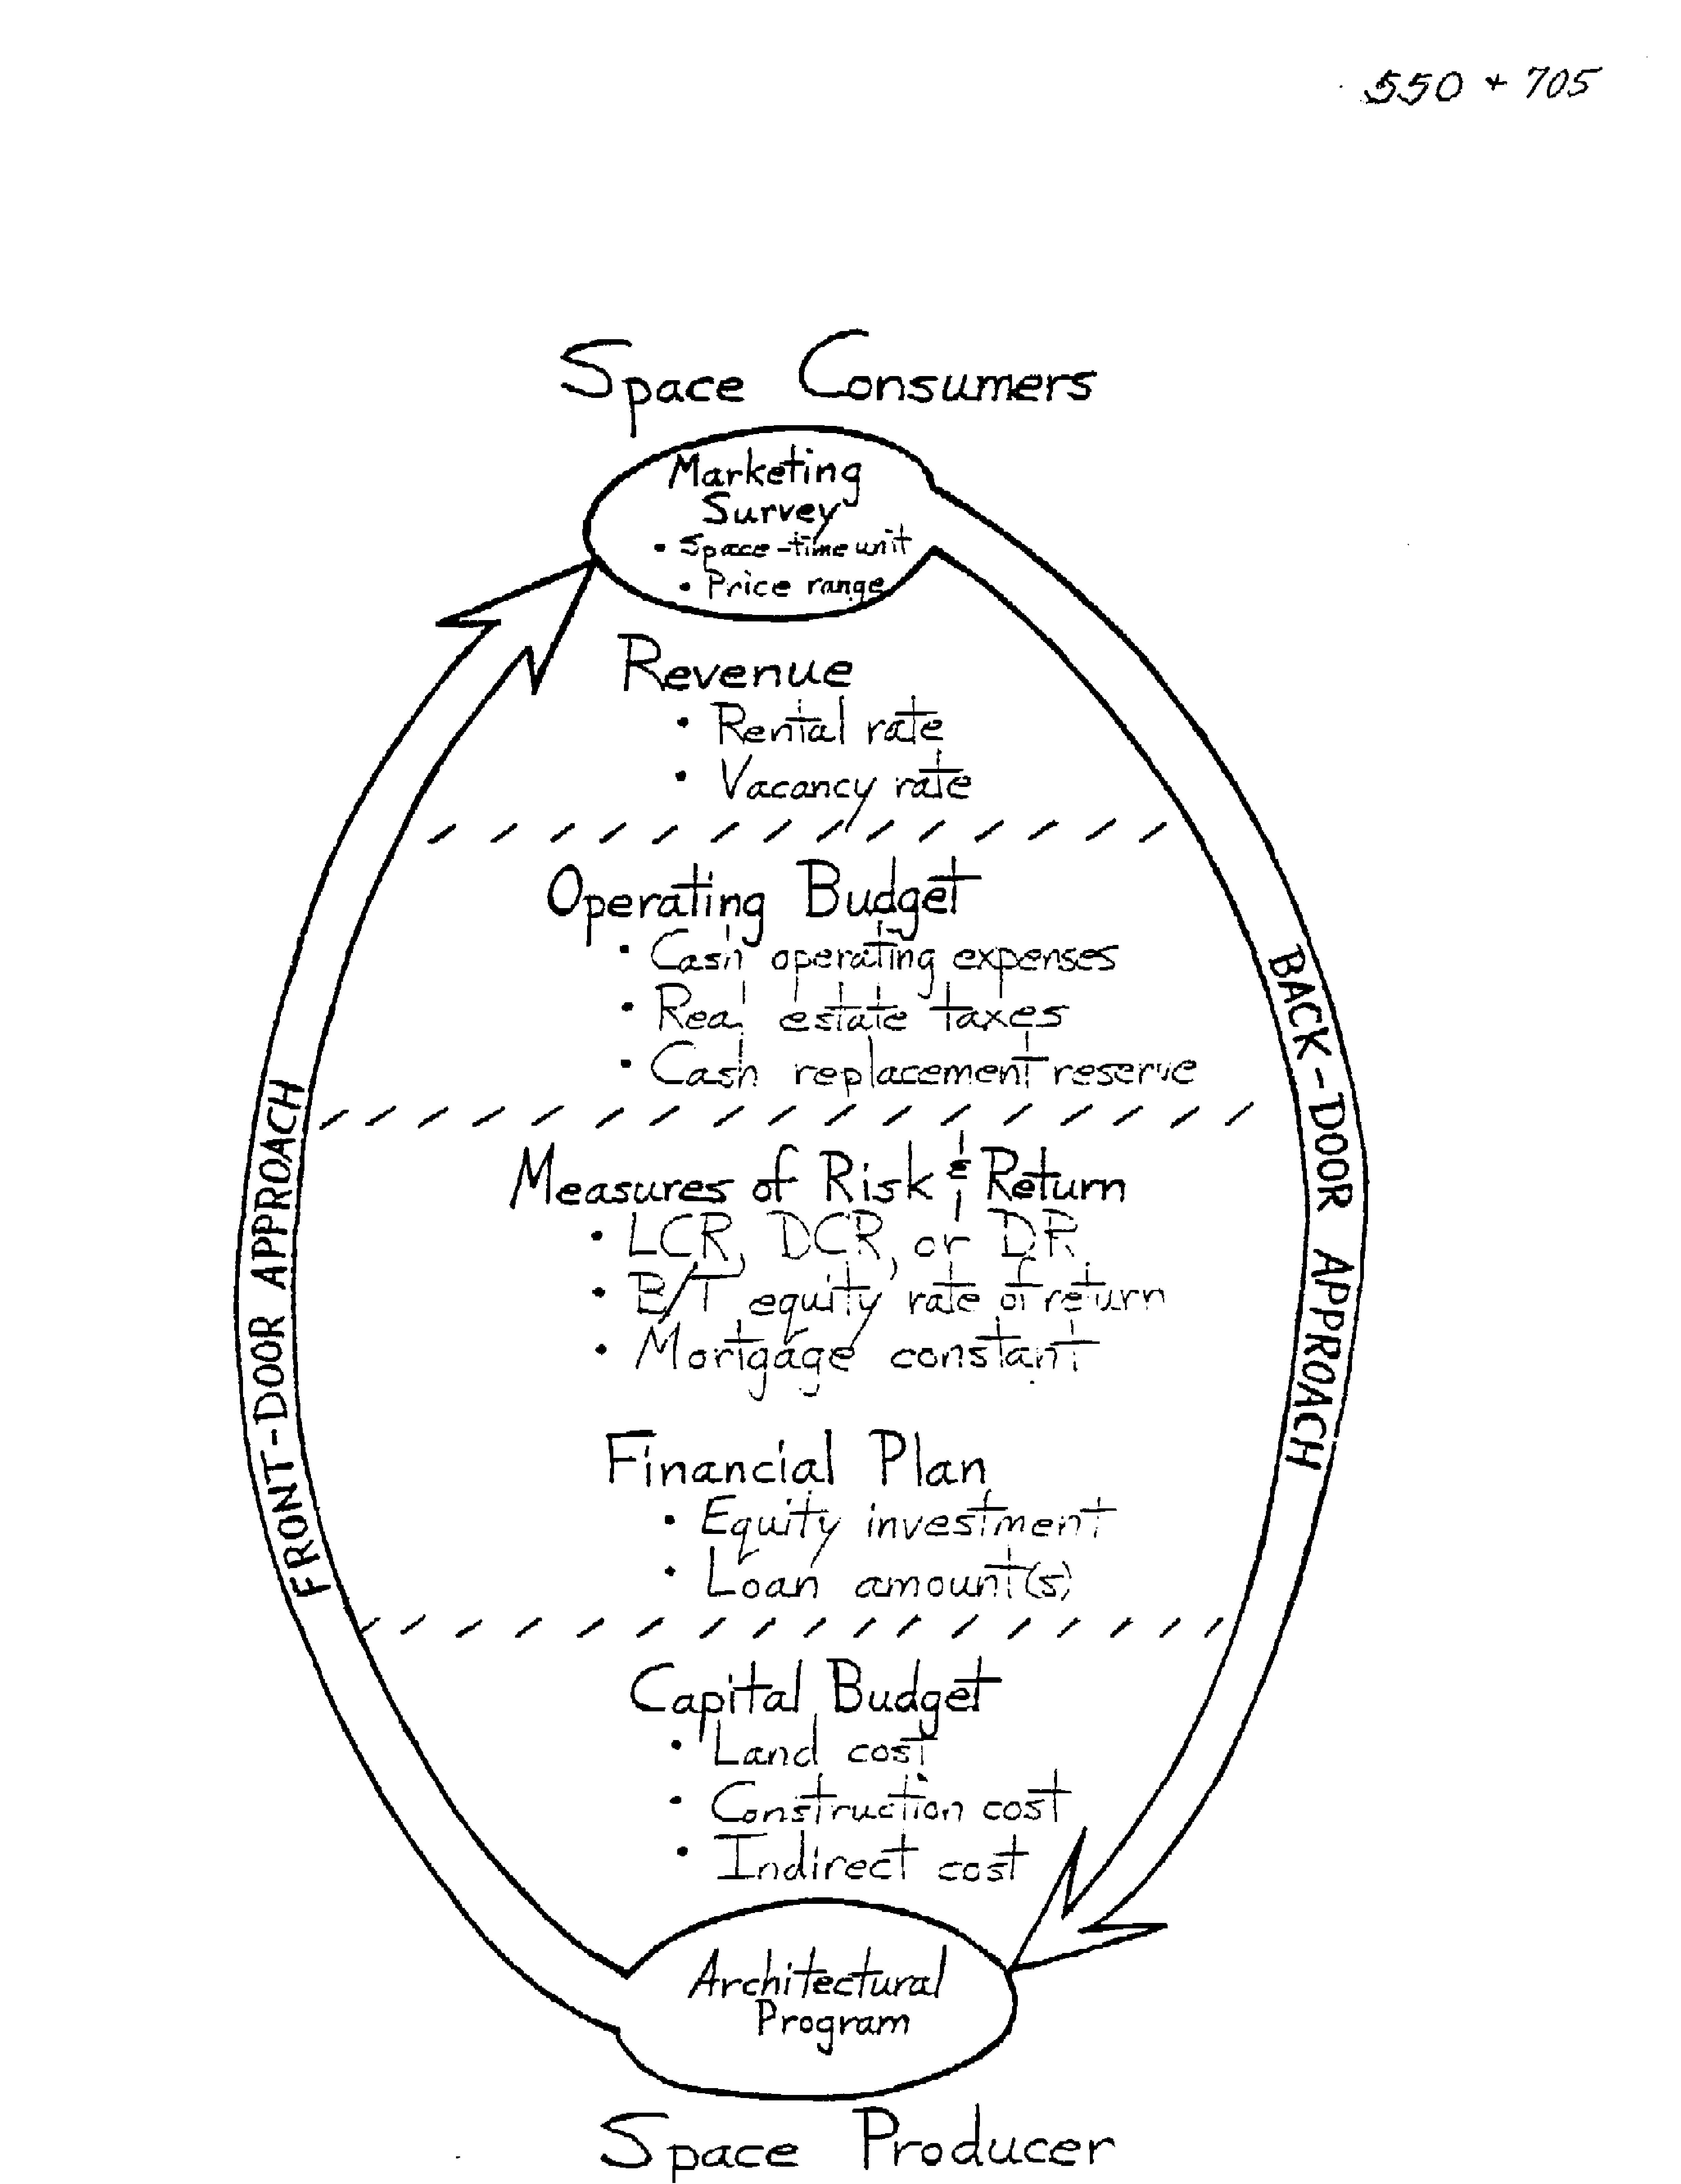 550 + 705
Space Consumers
Marketing
Survey
• Space-time unit
• Price range
Revenue
• Rental rate
• Vacancy rate
Operating Budget
• Cash operating expenses
• Real estate taxes
• Cash replacement reserve
Measures of Risk & Return
• LCR, DCR, or DR
• B/T equity rate of return
• Mortgage constant
Financial Plan
• Equity investment
• Loan amount(s)
Capital Budget
• Land cost
• Construction cost
• Indirect cost
Architectural
Program
Space Producer
FRONT-DOOR APPROACH
BACK-DOOR APPROACH